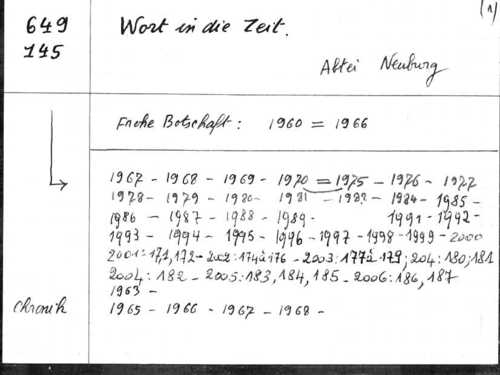 (1)
649 Wort in die Zeit.
145
Abtei Neuburg
Frohe Botschaft: 1960 = 1966
1967 - 1968 - 1969 - 1970 = 1975 - 1976 - 1977
1978 - 1979 - 1980 - 1981 - 1982 - 1984 - 1985 -
1986 - 1987 - 1988 - 1989 - 1991 - 1992 -
1993 - 1994 - 1995 - 1996 - 1997 - 1998 - 1999 - 2000
2001: 171, 172 - 2002: 174 à 176 - 2003: 177 à 179; 204: 180; 181
2004: 182 - 2005: 183, 184, 185 - 2006: 186, 187
1963 -
Chronik 1965 - 1966 - 1967 - 1968 -